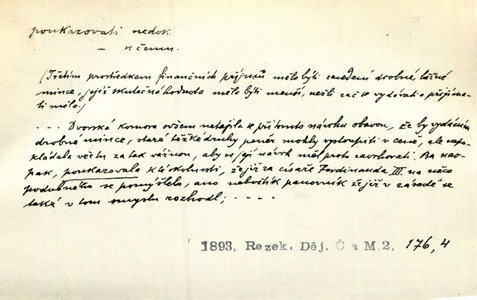 poukazovati nedok
— k čemu.
(Třetím prostředkem finančních příjmů mělo býti zavedení drobné ločné
mince, jejíž skutečná hodnota měla býti menší, nežli zač se vydávati a přijíma-
ti měla.)
- - - Dvorská komora ovšem netajila se při tomto návrhu obavou, že by vydáním
drobné mince, stará těžké druhy peněz mohly vystoupiti v ceně, ale nepo-
kládala věc tu za tak vážnou, aby se její návrh měl proto zavrhovati. Ba nao-
pak, poukazovala k té okolnosti, že již za císaře Ferdinanda III. na něco
podobného se pomýšlelo, ano nebožtík panovník že již v zásadě se
také v tom smyslu rozhodl; - - - -
1893, Rezek, Děj. Č a M.2, 176, 4